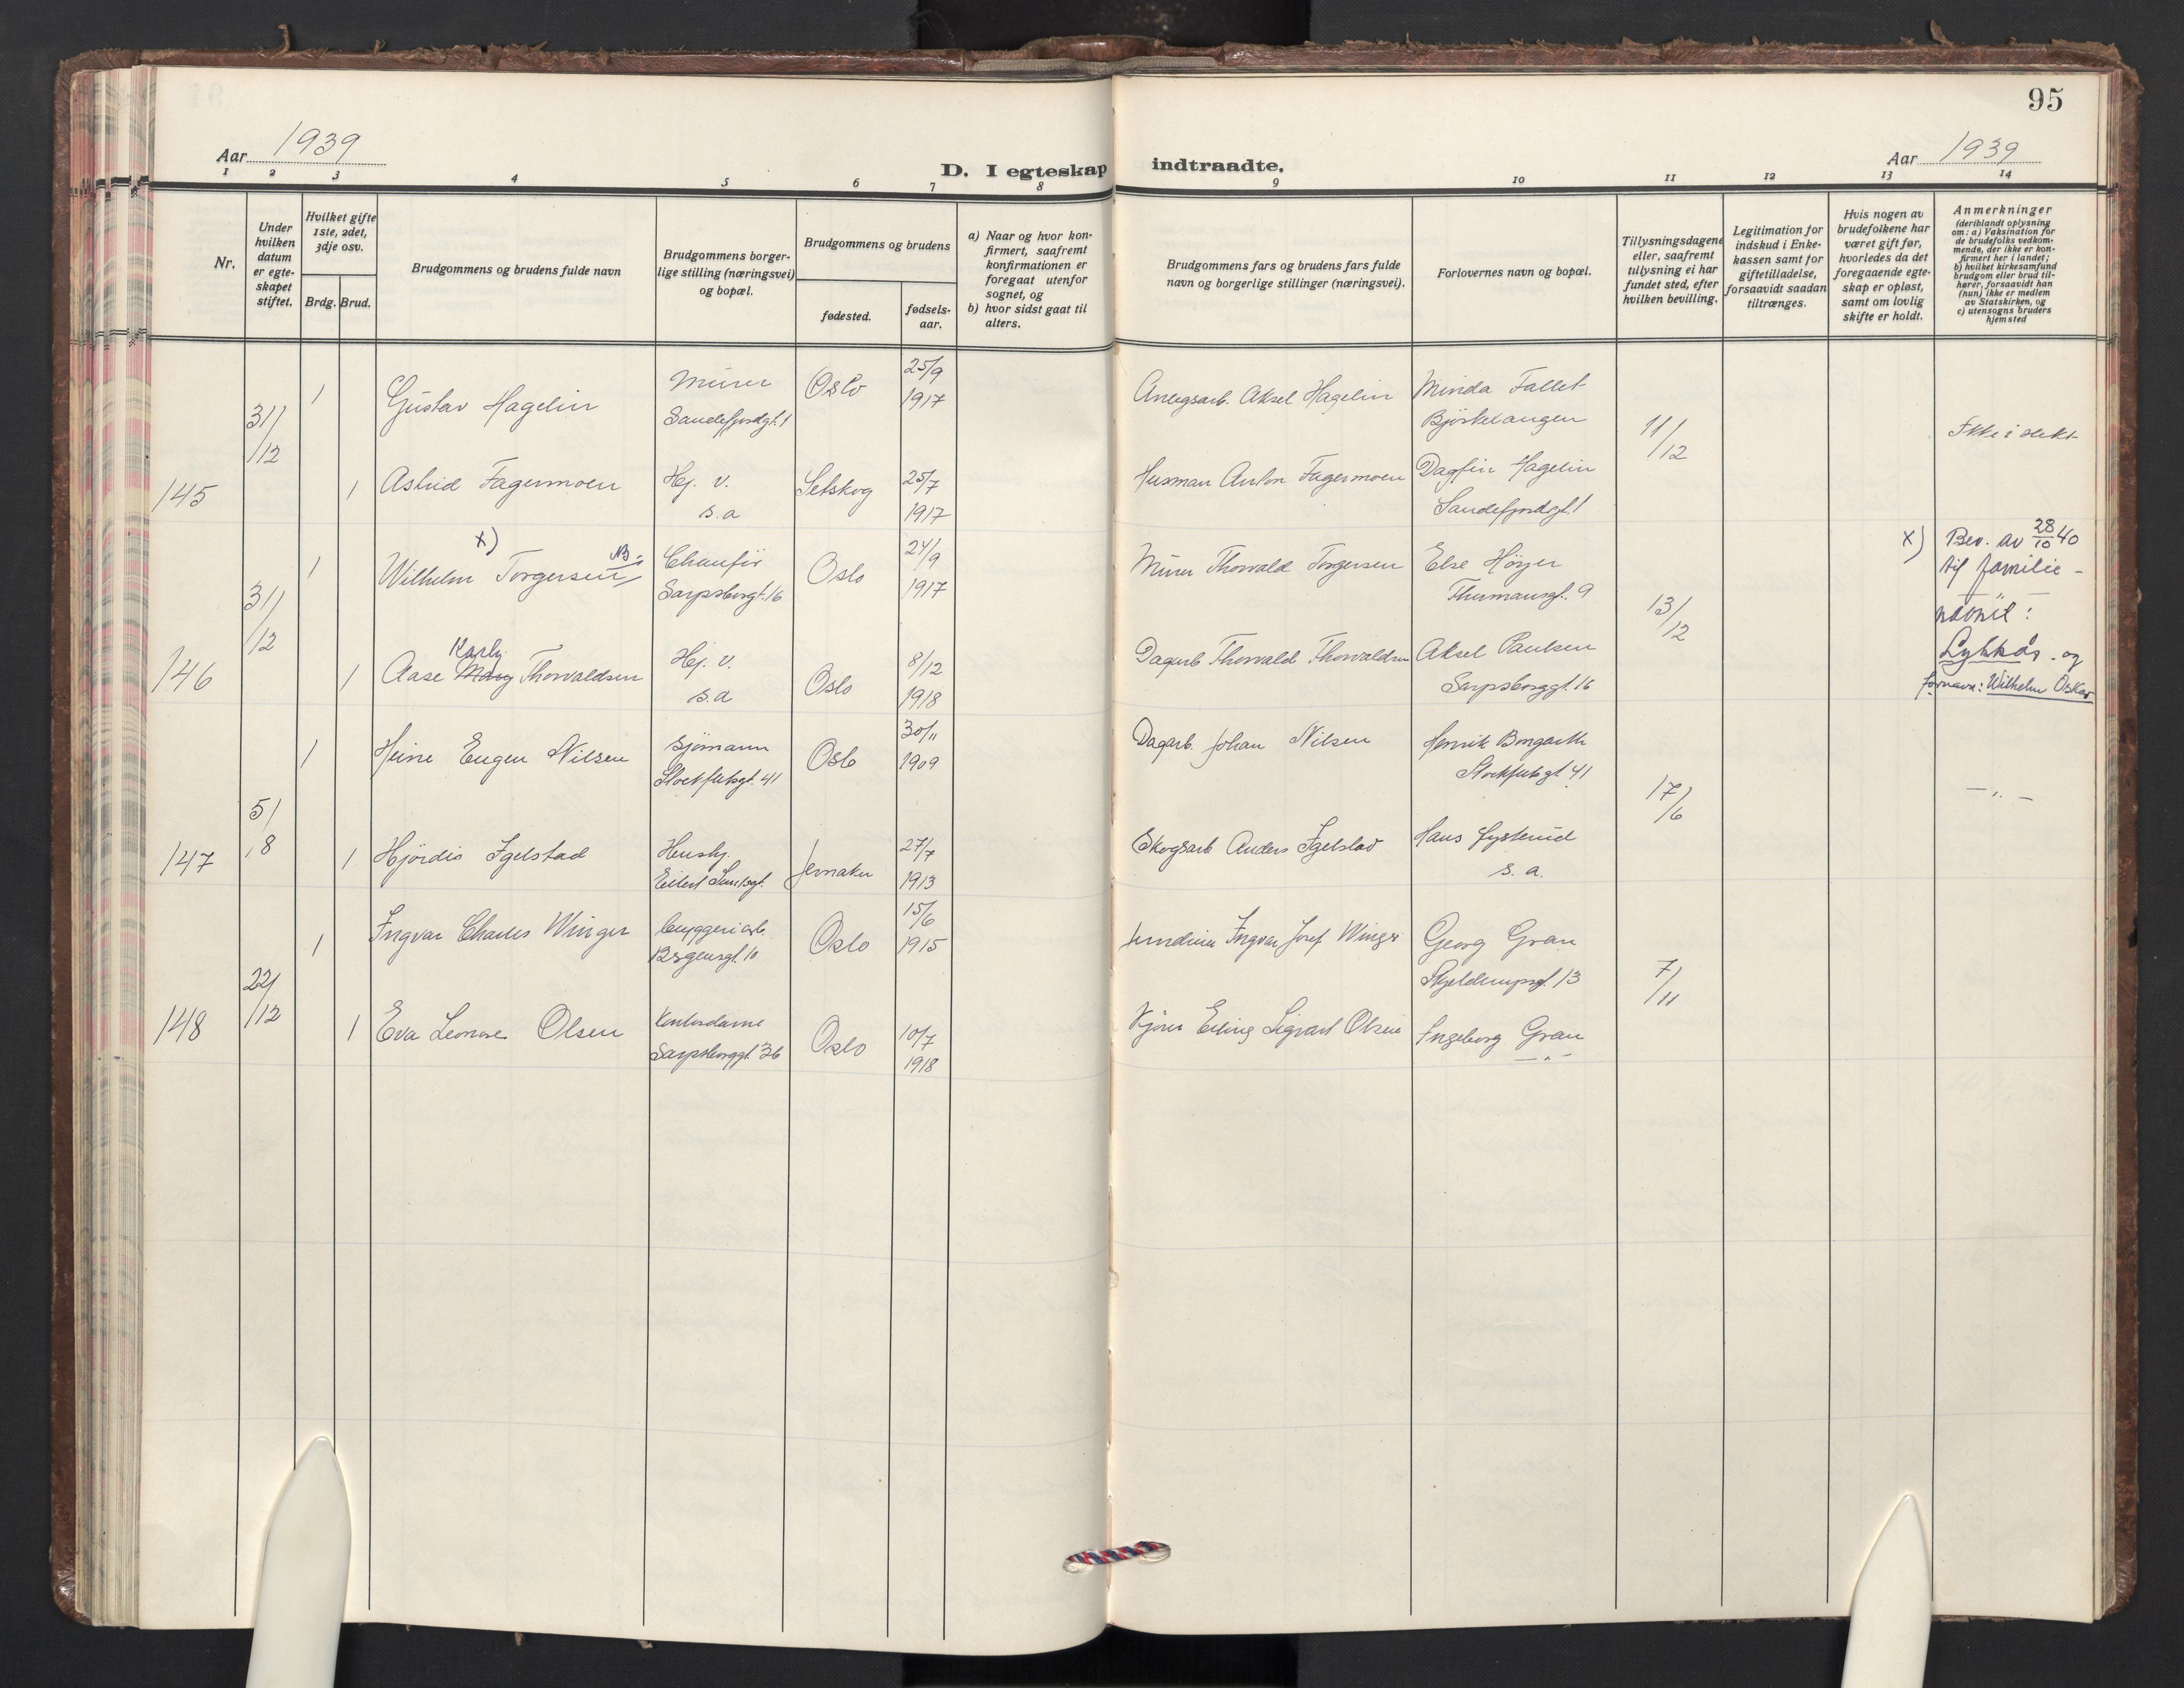 95
Aar 1939
D. I egteskap indtraadte.
Aar 1939
1 2 3 4 5 6 7 8 9 10 11 12 13 14
Nr.
Under hvilken datum er egteskapet stiftet.
Hvilket gifte 1ste, 2det, 3dje osv.
Brdg. Brud.
Brudgommens og brudens fulde navn
Brudgommens borgerlige stilling (næringsvei) og bopæl.
Brudgommens og brudens
fødested.
fødselsaar.
a) Naar og hvor konfirmert, saafremt konfirmationen er foregaat utenfor sognet, og
b) hvor sidst gaat til alters.
Brudgommens fars og brudens fars fulde navn og borgerlige stillinger (næringsvei).
Forlovernes navn og bopæl.
Tillysningsdagene eller, saafremt tillysning ei har fundet sted, efter hvilken bevilling.
Legitimation for indskud i Enkekassen samt for giftetilladelse, forsaavidt saadan tiltrænges.
Hvis nogen av brudefolkene har været gift før, hvorledes da det foregaaende egteskap er opløst, samt om lovlig skifte er holdt.
Anmerkninger
(deriblandt oplysning om: a) Vaksination for de brudefolks vedkommende, der ikke er konfirmert her i landet; b) hvilket kirkesamfund brudgom eller brud tilhører, forsaavidt han (hun) ikke er medlem av Statskirken, og c) utensogns bruders hjemsted
145
31/12
1 Gustav Hagelin
Murer
Sandefjordgt. 1
Oslo
25/9
1917
Aksel Hagelin
Minda Fallet
Bjørkelangen
11/12
Ikke i slekt
1 Astrid Fagermoen
Hj. v.
s.a
Setskog
25/7
1917
Husman Anton Fagermoen
Dagfin Hagelin
Sandefjordgt. 1
146
31/12
x)
1 Wilhelm Torgersen NB.
Chaufför
Sarpsborggt. 16
Oslo
24/9
1917
Murer Thorvald Torgersen
Else Höyer
Thurmannsgt. 9
13/12
x) Bev. av 28/10 40
til familie-
navnet:
Lykkås og
fornavn: Wilhelm Oskar
Karly
1 Aase Mary Thorvaldsen
Hj. v.
s.a
Oslo
8/12
1918
Dagarb Thorvald Thorvaldsen
Aksel Paulsen
Sarpsborggt. 16
147
5/8
1 Heine Eugen Nilsen
Sjömann
Stockfletsgt. 41
Oslo
30/11
1909
Dagarb. Johan Nilsen
Henrik
Stockfletsgt 41
17/6
— „ —
1 Hjördis Igelstad
Hushj.
Eilert Sundtsgt.
Jevnaker
27/7
1913
Skogsarb Anders Igelstad
Hans
s. a.
148
22/12
1 Ingvar Charles Winger
bryggeriarb.
Bergensgt. 10
Oslo
15/6
1915
Ingvar Josef Winger
Georg Gran
Skjelderupsgt. 13
7/11
1 Eva Leonore Olsen
Kontordame
Sarpsborggt. 3b
Oslo
10/7
1918
Kjörer Erling Sigvart Olsen
Ingeborg Gran
— „ —